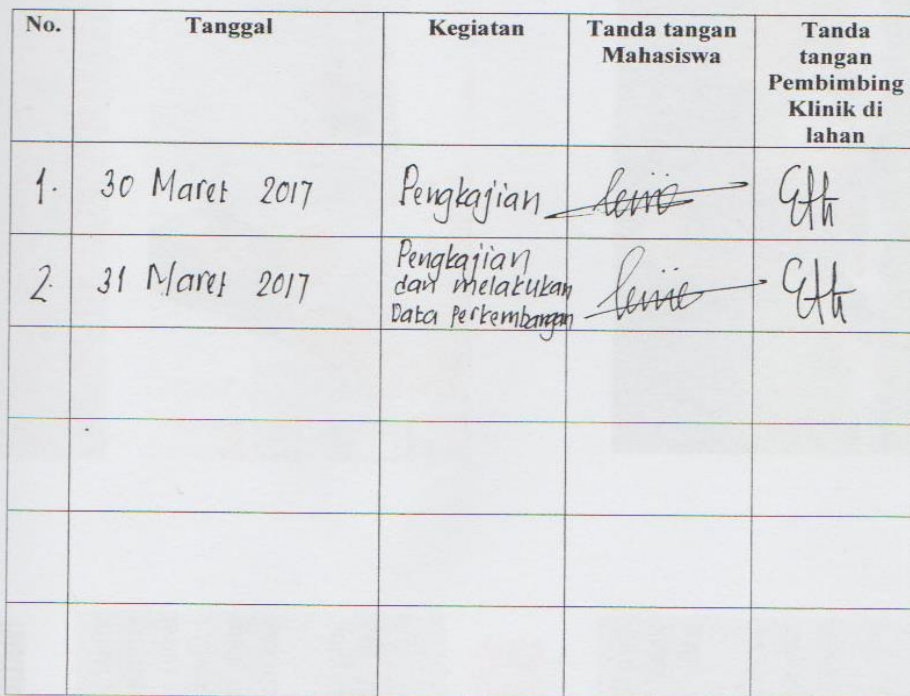 No. Tanggal Kegiatan Tanda tangan Tanda
Mahasiswa tangan
Pembimbing
Klinik di
lahan
1. 30 Maret 2017 Pengkajian
2. 31 Maret 2017 Pengkajian
dan melakukan
Data Perkembangan